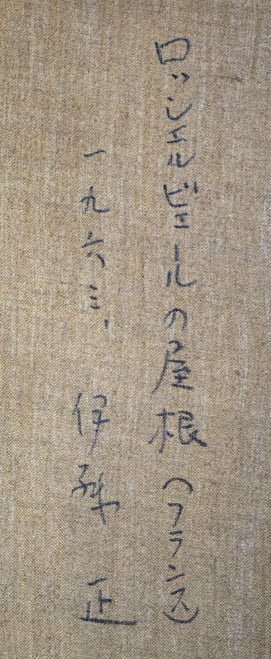 ロッシェルビエールの屋根(フランス)
一九六三、 伊藤 正